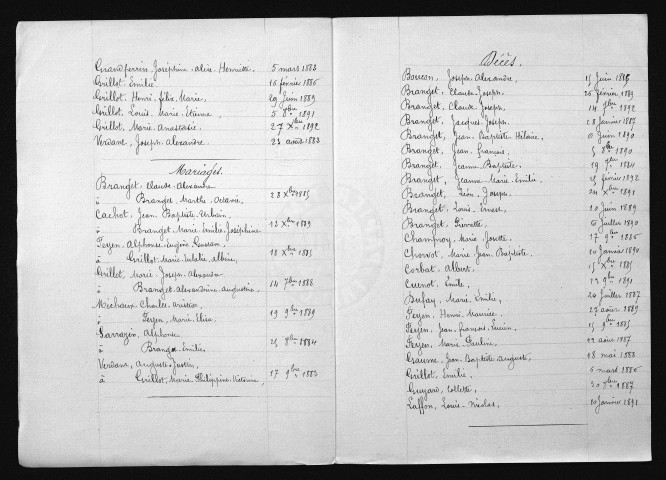 Grandperrin, Joséphine Alice Henriette. 5 mars 1883
Grillot, Emilie. 16 février 1886
Grillot, Henri, felix, Marie, 29 Juin 1889
Grillot, Louis, Marie, Etienne, 5 8bre 1891
Grillot, Marie, Anastasie, 27 Xbre 1892
Verdant, Joseph, Alexandre, 23 août 1883
Mariages.
Branget, Claude Alexandre
à Branget, Marthe Octavie, 28 Xbre 1885
Cachot, Jean Baptiste Urbain
à Branget Marie Emilie Joséphine 12 Xbre 1889
Feyen, Alphonse Eugène
à Grillot Marie Eulalie Albine, 18 Xbre 1885
Grillot, Marie Joseph Alexandre
à Branget Alexandrine Augustine, 14 7bre 1888
Méchaux, Charles
à Feyen, Marie, Elisa, 19 9bre 1889
Sarrazin, Alphonse
à Branget Emilie, 25 8bre 1884
Verdant, Auguste Justin,
à Grillot, Marie Philippine Victorine, 17 9bre 1883
Décès.
Bouson, Joseph Alexandre, 15 Juin 1885
Branget, Claude Joseph, 26 février 1889
Branget, Claude Joseph, 14 1892
Branget, Jacques Joseph, 28 Janvier 1887
Branget, Jean Baptiste Hilaire, Juin 1890
Branget, Jean françois, 5 8bre 1890
Branget, Jeanne Baptiste, 29 1884
Branget, Jeanne Marie Emilie, 25 février 1892
Branget, Léon Joseph, 24 1891
Branget, Louis Ernest, 20 Juin 1889
Branget, Pierrette, 6 Juillet 1890
Champroy, Marie Josette, 17 9bre 1886
Chorvot, Marie Jean Baptiste, 10 Janvier 1894
Corbat, Albert, 15 Xbre 1885
Cuenot, Emile, 12 9bre 1891
Dufay, Marie Emilie, 24 Juillet 1887
Feyen, Henri Maurice, 27 août 1889
Feyen, Jean françois Lucien, 15 9bre 1885
Feyen, Marie Pauline, 22 août 1887
Gaume, Jean Baptiste Auguste, 18 mai 1888
Grillot, Emilie, 6 mars 1886
Guyard, Collette, 30 1887
Laffon, Louis Nicolas, 20 Janvier 1891